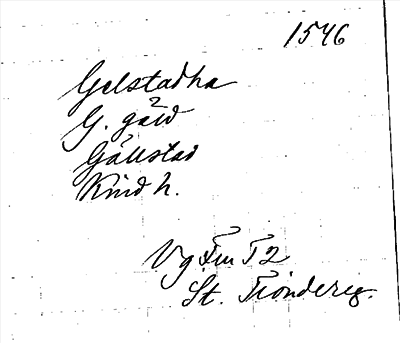 1546
Gelstadha
G. gäld
Gällstad
Kind h.
Vg Fm T 2
St. Tiondereg.